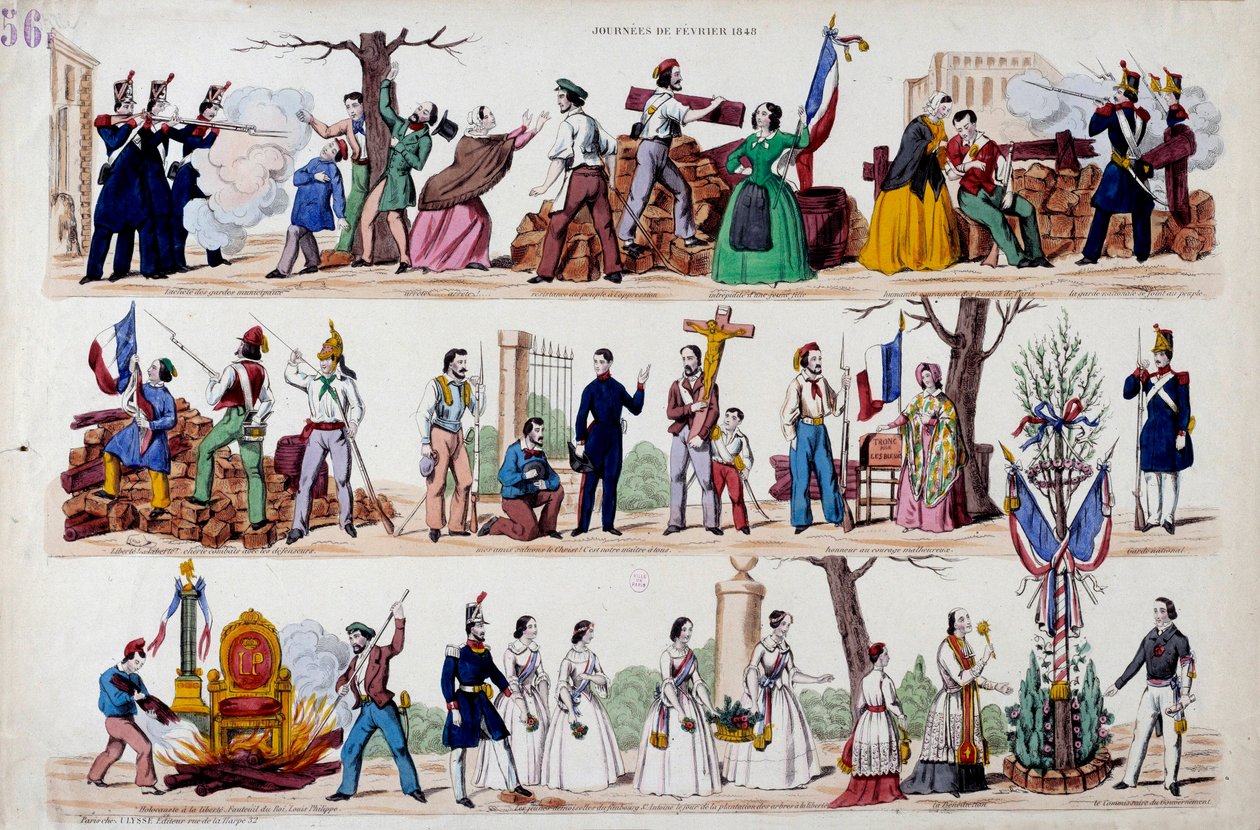 56
JOURNÉES DE FÉVRIER 1848
lacheté des gardes municipaux
arrêtez...... arrêtez!..
resistance du peuple à l'oppression
intrépidité d'une jeune fille
humanité courageuse des femmes de Paris
la garde nationale se joint au peuple
Liberté!... Liberté!.. chérie combats avec tes défenseurs.
mes amis saluons le Christ! C'est notre maître à tous.
TRONC
POUR
LES BLESSÉS
honneur au courage malheureux.
Garde national
VILLE
DE
PARIS
LP
Holocauste à la liberté. Fauteuil du Roi, Louis Philippe
Les jeunes demoiselles du faubourg St Antoine le jour de la plantation des arbres à la liberté
la Bénédiction
le Commissaire du Gouvernement
Paris chez ULYSSE Editeur rue de la Harpe 52